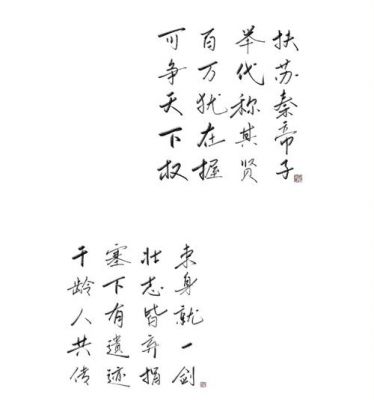 扶苏秦帝子
举代称其贤
百万犹在握
可争天下权
束身就一剑
壮志皆弃捐
塞下有遺迹
千龄人共传